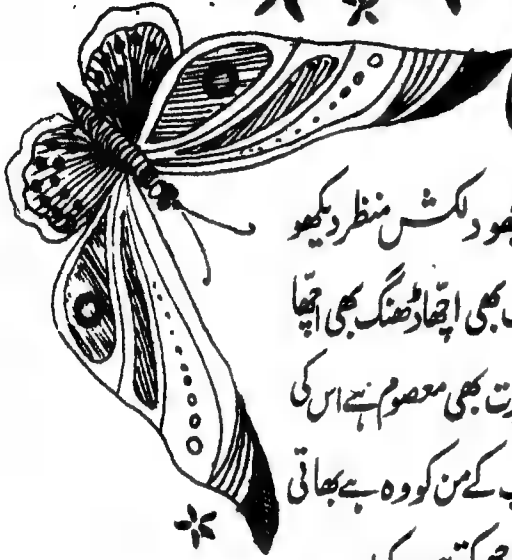 دلکش منظر دیکھو
بھی اچھا ڈھنگ بھی اچھا
بھی معصوم ہے اس کی
کے من کو وہ ہے بھاتی